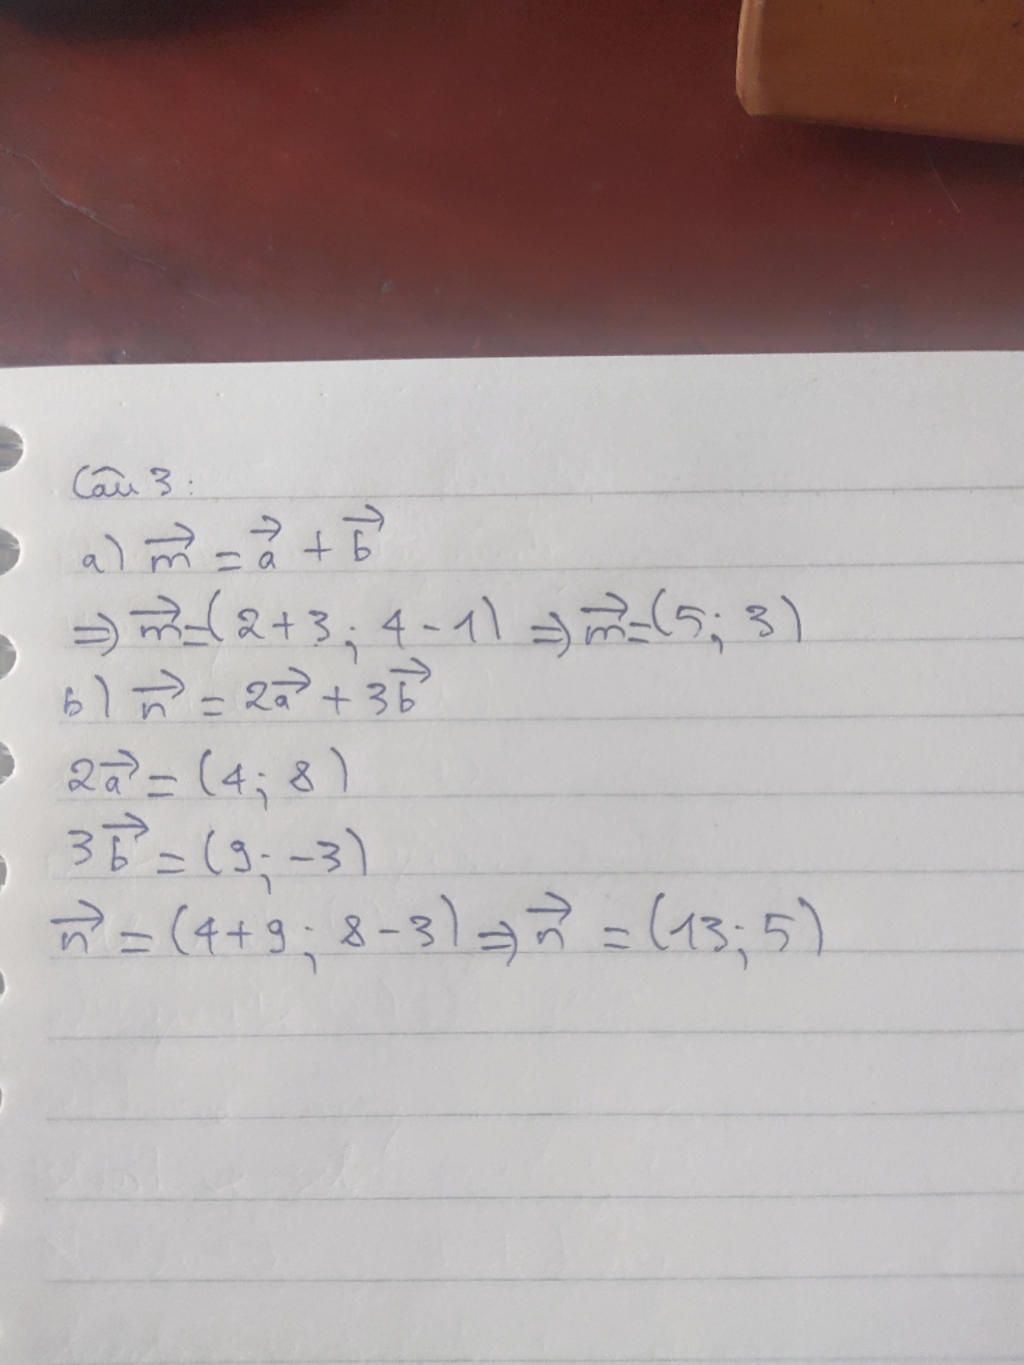 Câu 3:
a) \vec{m} = \vec{a} + \vec{b}
⇒ \vec{m} = (2+3; 4-1) ⇒ \vec{m} = (5; 3)
b) \vec{n} = 2\vec{a} + 3\vec{b}
2\vec{a} = (4; 8)
3\vec{b} = (9; -3)
\vec{n} = (4+9; 8-3) ⇒ \vec{n} = (13; 5)